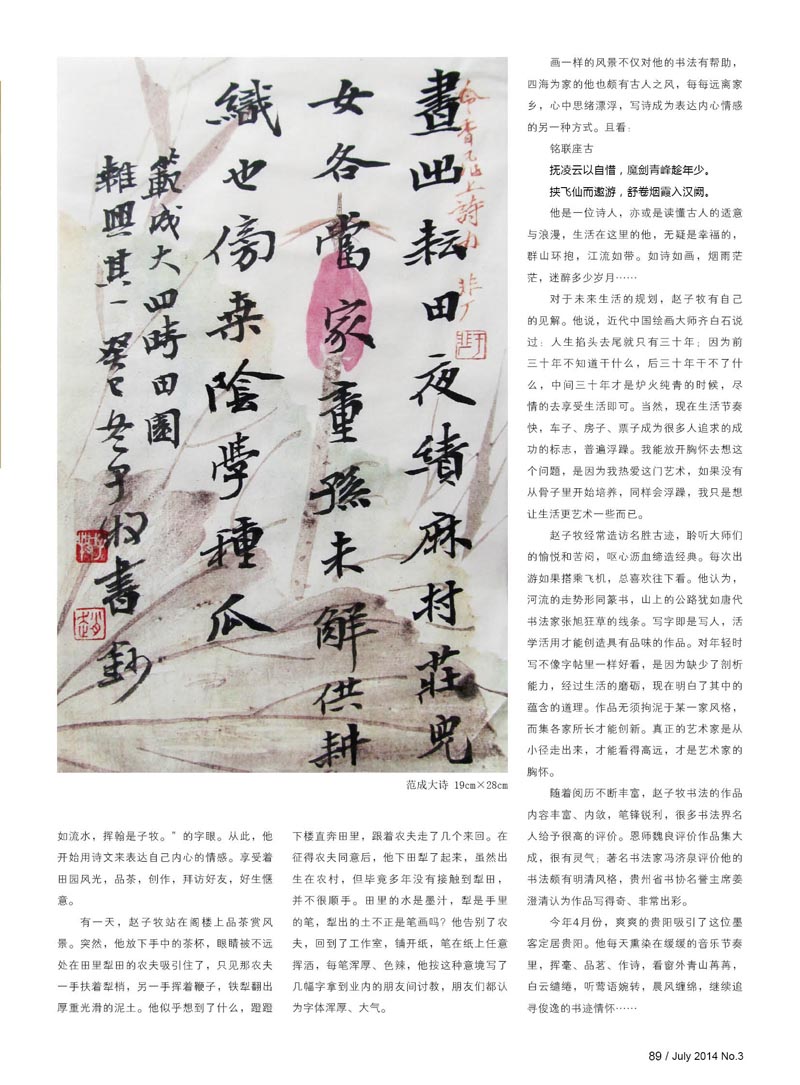 晝出耘田夜績麻村莊兒
女各當家重孫未解供耕
織也傍桑陰學種瓜
範成大四時田園
雜興其一 癸巳冬子牧書鈔
上詩句 非厂
范成大诗 19cm×28cm
如流水，挥翰是子牧。”的字眼。从此，他
开始用诗文来表达自己内心的情感。享受着
田园风光，品茶，创作，拜访好友，好生惬
意。
有一天，赵子牧站在阁楼上品茶赏风
景。突然，他放下手中的茶杯，眼睛被不远
处在田里犁田的农夫吸引住了，只见那农夫
一手扶着犁梢，另一手挥着鞭子，铁犁翻出
厚重光滑的泥土。他似乎想到了什么，蹬蹬
下楼直奔田里，跟着农夫走了几个来回。在
征得农夫同意后，他下田犁了起来，虽然出
生在农村，但毕竟多年没有接触到犁田，
并不很顺手。田里的水是墨汁，犁是手里
的笔，犁出的土不正是笔画吗？他告别了农
夫，回到了工作室，铺开纸，笔在纸上任意
挥洒，每笔浑厚、色辣，他按这种意境写了
几幅字拿到业内的朋友间讨教，朋友们都认
为字体浑厚、大气。
画一样的风景不仅对他的书法有帮助，
四海为家的他也颇有古人之风，每每远离家
乡，心中思绪漂浮，写诗成为表达内心情感
的另一种方式。且看：
铭联座古
抚凌云以自惜，魔剑青峰趁年少。
挟飞仙而遨游，舒卷烟霞入汉阙。
他是一位诗人，亦或是读懂古人的适意
与浪漫，生活在这里的他，无疑是幸福的，
群山环抱，江流如带。如诗如画，烟雨茫
茫，迷醉多少岁月……
对于未来生活的规划，赵子牧有自己
的见解。他说，近代中国绘画大师齐白石说
过：人生掐头去尾就只有三十年；因为前
三十年不知道干什么，后三十年干不了什
么，中间三十年才是炉火纯青的时候，尽
情的去享受生活即可。当然，现在生活节奏
快，车子、房子、票子成为很多人追求的成
功的标志，普遍浮躁。我能放开胸怀去想这
个问题，是因为我热爱这门艺术，如果没有
从骨子里开始培养，同样会浮躁，我只是想
让生活更艺术一些而已。
赵子牧经常造访名胜古迹，聆听大师们
的愉悦和苦闷，呕心沥血缔造经典。每次出
游如果搭乘飞机，总喜欢往下看。他认为，
河流的走势形同篆书，山上的公路犹如唐代
书法家张旭狂草的线条。写字即是写人，活
学活用才能创造具有品味的作品。对年轻时
写不像字帖里一样好看，是因为缺少了剖析
能力，经过生活的磨砺，现在明白了其中的
蕴含的道理。作品无须拘泥于某一家风格，
而集各家所长才能创新。真正的艺术家是从
小径走出来，才能看得高远，才是艺术家的
胸怀。
随着阅历不断丰富，赵子牧书法的作品
内容丰富、内敛，笔锋锐利，很多书法界名
人给予很高的评价。恩师魏良评价作品集大
成，很有灵气；著名书法家冯济泉评价他的
书法颇有明清风格，贵州省书协名誉主席姜
澄清认为作品写得奇、非常出彩。
今年4月份，爽爽的贵阳吸引了这位墨
客定居贵阳。他每天熏染在缓缓的音乐节奏
里，挥毫、品茗、作诗，看窗外青山苒苒，
白云缱绻，听莺语婉转，晨风缠绵，继续追
寻俊逸的书迹情怀……
89 / July 2014 No.3